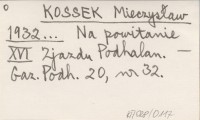 KOSSEK Mieczysław
1932... Na powitanie
XVI Zjazdu Podhalan. —
Gaz. Podh. 20, nr 32.